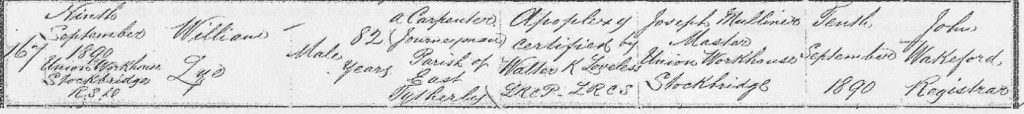 167
Ninth
September
1890
Union Workhouse
Stockbridge
R.S.D
William
Male
82
Years
a Carpenter
(Journeyman)
Parish of
East
Tytherley
Apoplexy
certified by
Walter K Loveless
LRCP LRCS
Joseph Mulliner
Master
Union Workhouse
Stockbridge
Tenth
September
1890
John
Wakeford
Registrar